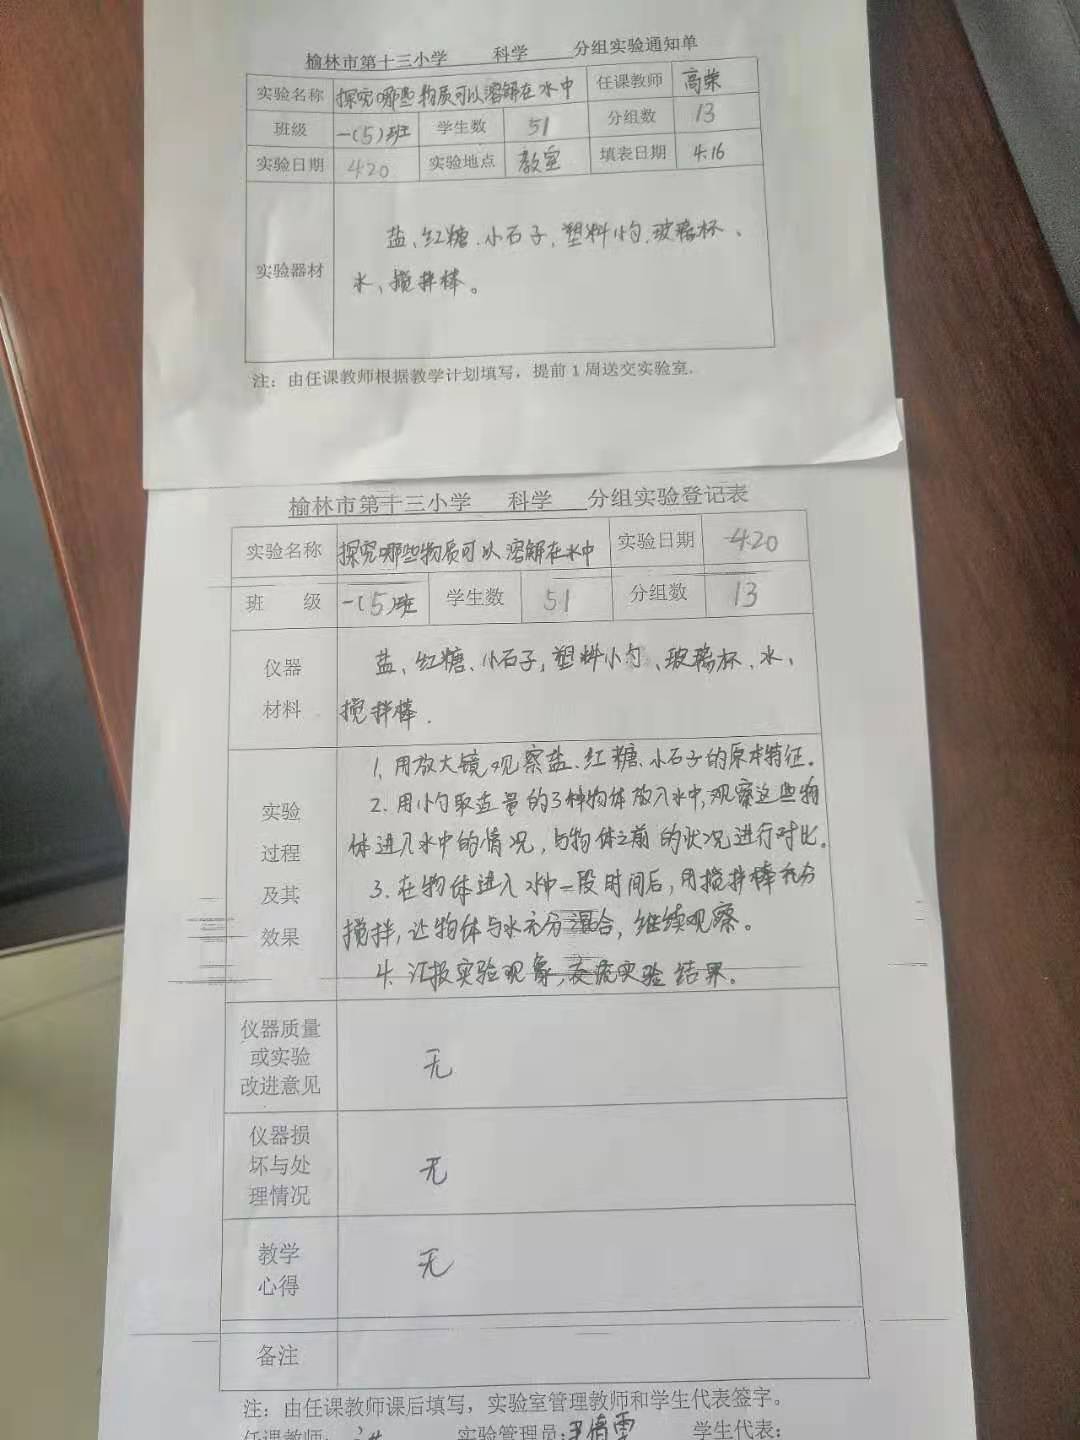 榆林市第十三小学 科学 分组实验通知单
实验名称 探究哪些物质可以溶解在水中 任课教师 高荣
班级 一(5)班 学生数 51 分组数 13
实验日期 4.20 实验地点 教室 填表日期 4.16
实验器材
盐、红糖、小石子、塑料小勺、玻璃杯、
水、搅拌棒。
注：由任课教师根据教学计划填写，提前1周送交实验室.
榆林市第十三小学 科学 分组实验登记表
实验名称 探究哪些物质可以溶解在水中 实验日期 4.20
班 级 一(5)班 学生数 51 分组数 13
仪器
材料
盐、红糖、小石子、塑料小勺、玻璃杯、水、
搅拌棒.
实验
过程
及其
效果
1、用放大镜观察盐、红糖、小石子的原本特征。
2.用小勺取适量的3种物体放入水中,观察这些物
体进入水中的情况，与物体之前的状况进行对比。
3.在物体进入水中一段时间后，用搅拌棒充分
搅拌,让物体与水充分混合，继续观察。
4.汇报实验现象,交流实验结果。
仪器质量
或实验
改进意见
无
仪器损
坏与处
理情况
无
教学
心得
无
备注
注：由任课教师课后填写，实验室管理教师和学生代表签字。
任课教师: 实验管理员: 学生代表: